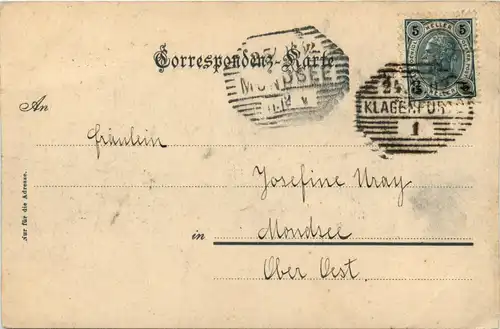 Correspondenz-Karte
MONDSEE
5 HELLER 5
24
KLAGENFURT
1
An
Fräulein
Josefine Uray
in Mondsee
Ober Oest.
Nur für die Adresse.